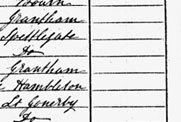 Bourn
Grantham
Spittlegate
Do
Grantham
Hambleton
Gt Gonerby
Do